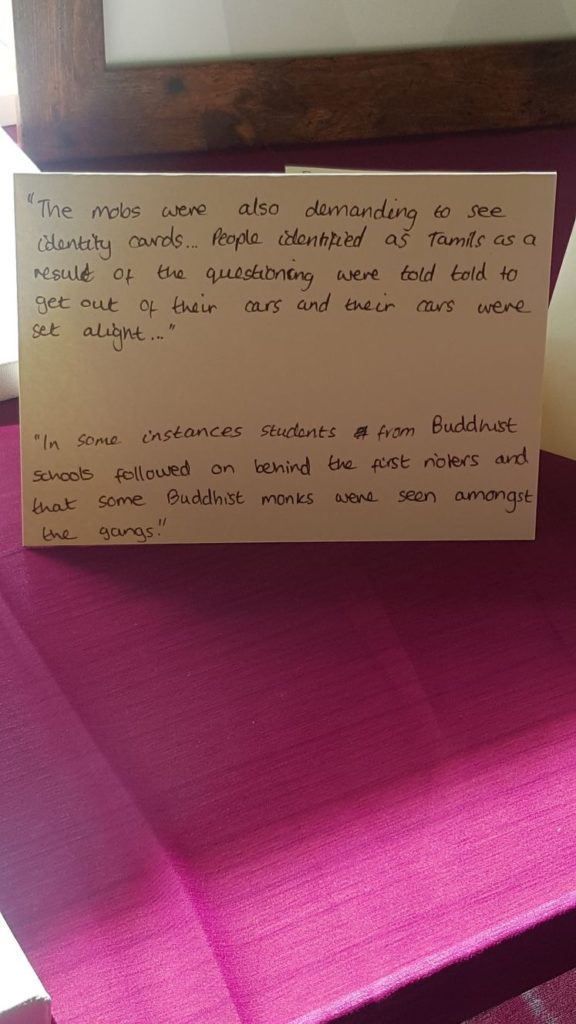 "The mobs were also demanding to see
identity cards... People identified as Tamils as a
result of the questioning were told told to
get out of their cars and their cars were
set alight..."
"In some instances students from Buddhist
schools followed on behind the first rioters and
that some Buddhist monks were seen amongst
the gangs."